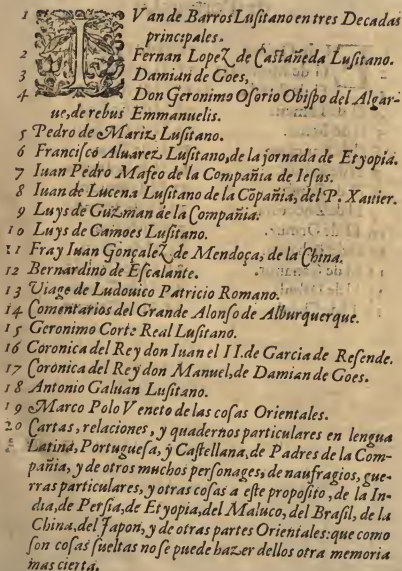 1 IVan de Barros Lusitano en tres Decadas
principales.
2 Fernan Lopez de Castañeda Lusitano.
3 Damian de Goes,
4 Don Geronimo Osorio Obispo del Algar-
ue, de rebus Emmanuelis.
5 Pedro de Mariz Lusitano.
6 Francisco Aluarez Lusitano, de la jornada de Etyopia.
7 Iuan Pedro Mafeo de la Compañia de Iesus.
8 Iuan de Lucena Lusitano de la Cõpañia, del P. Xauier.
9 Luys de Guzman de la Compañia.
10 Luys de Camoes Lusitano.
11 Fray Iuan Gonçalez de Mendoça, de la China.
12 Bernardino de Escalante.
13 Viage de Ludouico Patricio Romano.
14 Comentarios del Grande Alonso de Alburquerque.
15 Geronimo Corte Real Lusitano.
16 Coronica del Rey don Iuan el II. de Garcia de Resende.
17 Coronica del Rey don Manuel, de Damian de Goes.
18 Antonio Galuan Lusitano.
19 Marco Polo Veneto de las cosas Orientales.
20 Cartas, relaciones, y quadernos particulares en lengua
Latina, Portuguesa, y Castellana, de Padres de la Com-
pañia, y de otros muchos personages, de naufragios, gue-
rras particulares, y otras cosas a este proposito, de la In-
dia, de Persia, de Etyopia, del Maluco, del Brasil, de la
China, del Japon, y de otras partes Orientales: que como
son cosas sueltas no se puede hazer dellos otra memoria
mas cierta.